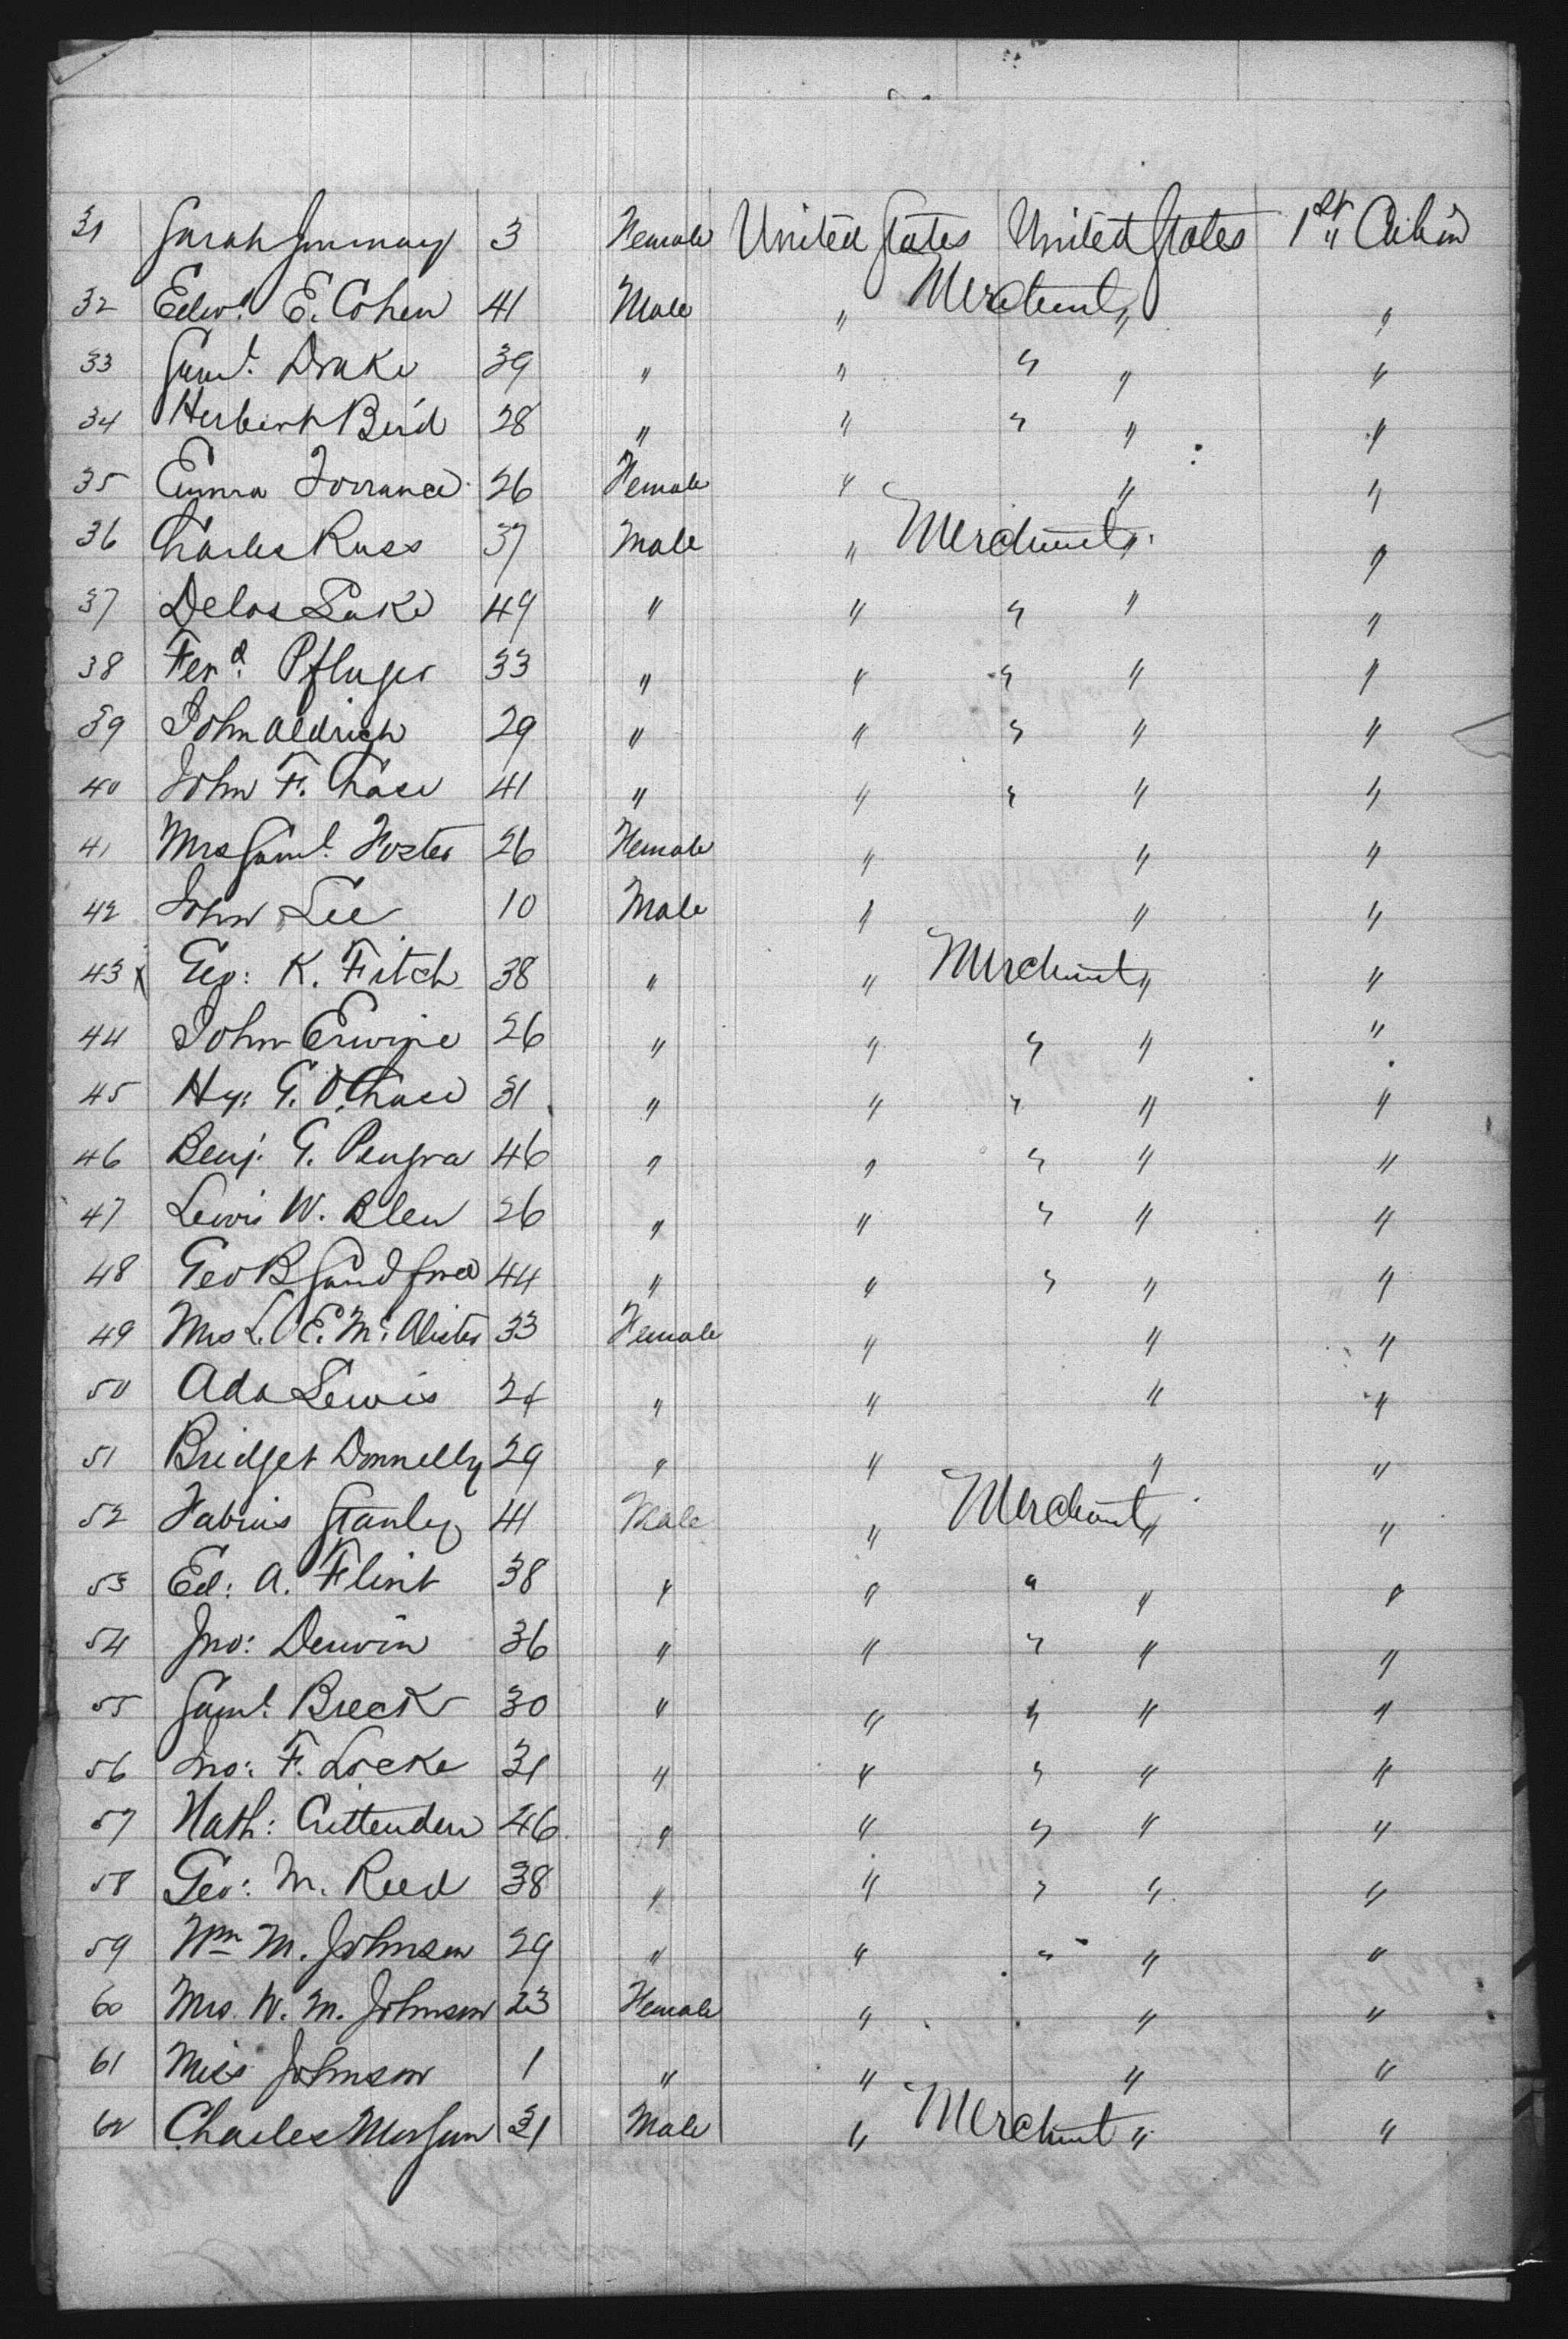 31 Sarah 3 Female United States United States 1st Cabin
32 Edwd. E. Cohen 41 Male " Merchant " "
33 Saml. Drake 39 " " " " "
34 Herbert Bird 28 " " " " "
35 Emma Torrance 26 Female " " "
36 Charles Russ 37 Male " Merchant " "
37 Delos Lake 49 " " " " "
38 Ferd. Pfluger 33 " " " " "
39 John Aldrich 29 " " " " "
40 John F. Chase 41 " " " " "
41 Mrs Saml. Foster 26 Female " " "
42 John Lee 10 Male " " "
43 Geo: K. Fitch 38 " " Merchant " "
44 John Erwine 26 " " " " "
45 Hy: G. O. Chase 31 " " " " "
46 Benj. G. Pengra 46 " " " " "
47 Lewis W. Blew 26 " " " " "
48 Geo B Sandford 44 " " " " "
49 Mrs L. E. Mc. Alister 33 Female " " "
50 Ada Lewis 24 " " " "
51 Bridget Donnelly 29 " " " "
52 Fabius Stanley 41 Male " Merchant " "
53 Ed: A. Flint 38 " " " " "
54 Jno: Derwin 36 " " " " "
55 Saml. Breck 30 " " " " "
56 Jno: F. Locke 31 " " " " "
57 Nath: Crittenden 46 " " " " "
58 Geo: M. Reed 38 " " " " "
59 Wm M. Johnson 29 " " " " "
60 Mrs. W. M. Johnson 23 Female " " "
61 Miss Johnson 1 " " " "
62 Charles Morgan 31 Male " Merchant " "